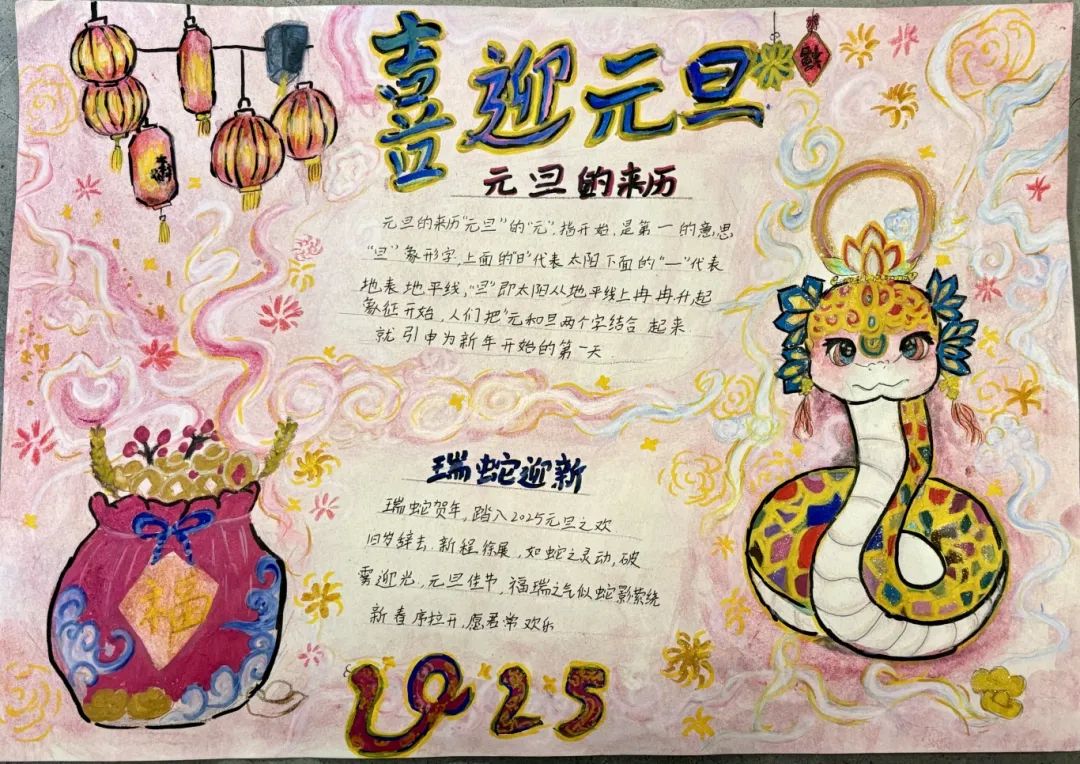 喜迎元旦
元旦的来历
元旦的来历"元旦"的"元",指开始,是第一的意思
"旦"象形字,上面的"日"代表太阳下面的"一"代表
地表地平线,"旦"即太阳从地平线上冉冉升起
象征开始,人们把"元和旦两个字结合起来
就引申为新年开始的第一天.
瑞蛇迎新
瑞蛇贺年,踏入2025元旦之欢
旧岁辞去.新程徐展,如蛇之灵动,破
雾迎光,元旦佳节,福瑞之气似蛇影萦绕
新春序拉开,愿君常欢乐
福
2025